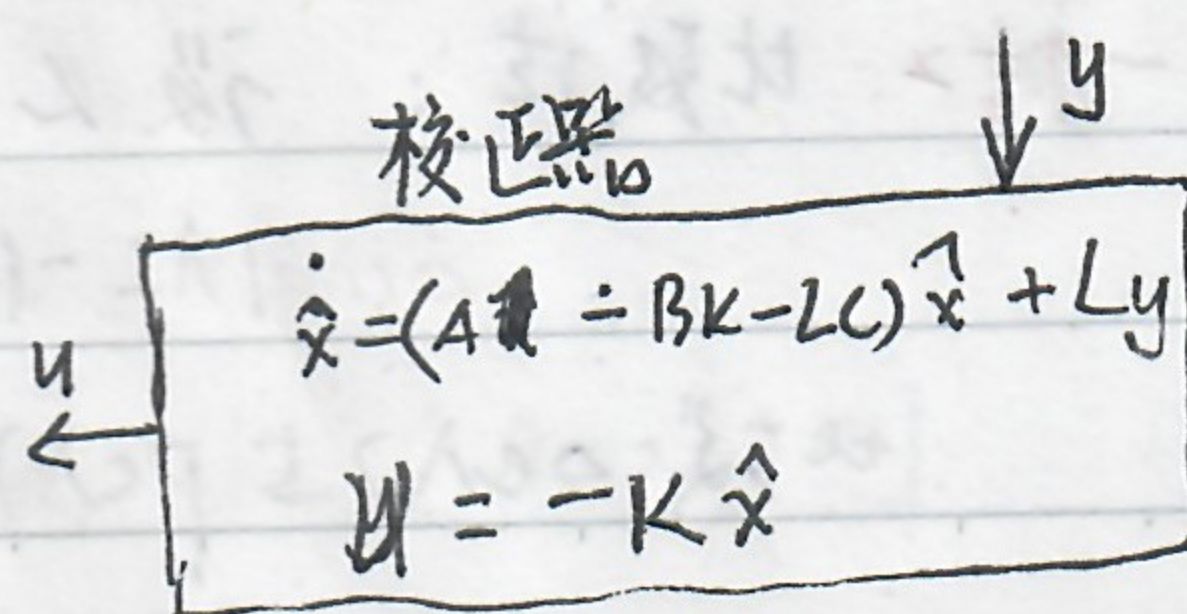 y
校正器
u
x̂̇ = (A - BK - LC) x̂ + Ly
u = -K x̂